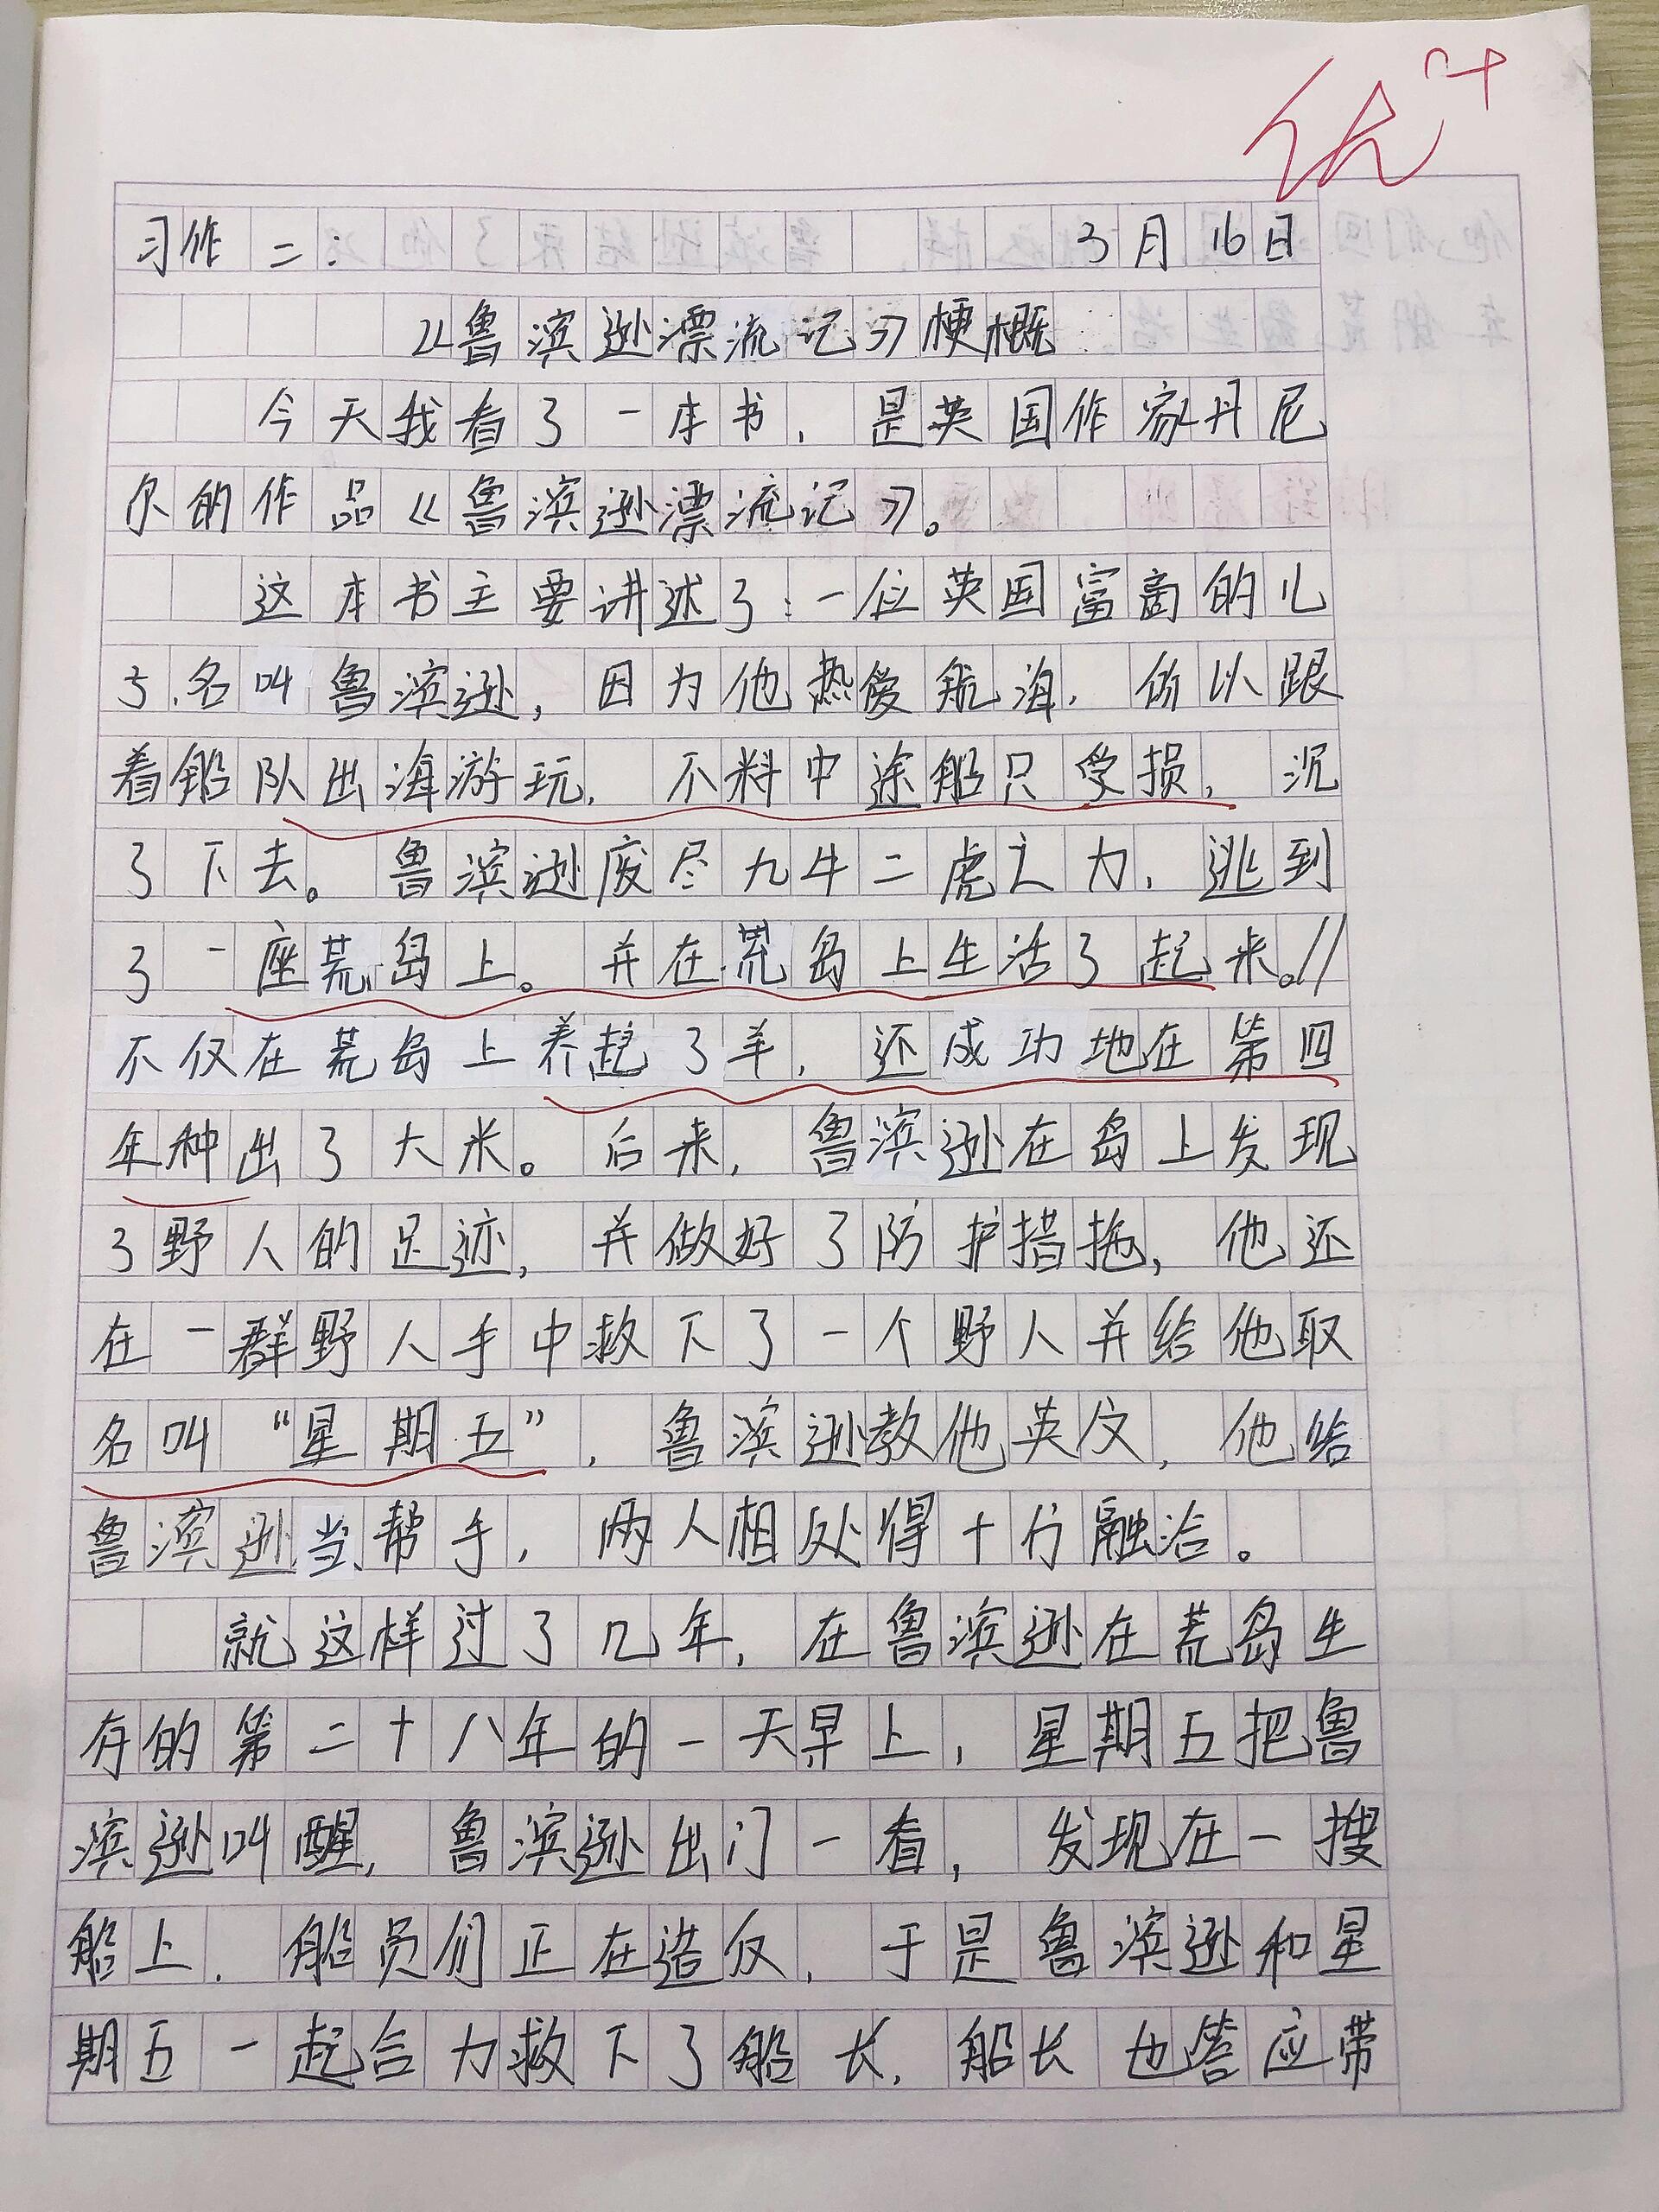 优+
习作二: 3月16日
《鲁滨逊漂流记》梗概
今天我看了一本书，是英国作家丹尼
尔的作品《鲁滨逊漂流记》。
这本书主要讲述了:一位英国富商的儿
子,名叫鲁滨逊，因为他热爱航海，所以跟
着船队出海游玩，不料中途船只受损，沉
了下去。鲁滨逊废尽九牛二虎之力，逃到
了一座荒岛上。并在荒岛上生活了起来。//
不仅在荒岛上养起了羊，还成功地在第四
年种出了大米。后来，鲁滨逊在岛上发现
了野人的足迹，并做好了防护措拖，他还
在一群野人手中救下了一个野人并给他取
名叫“星期五”，鲁滨逊教他英文，他给
鲁滨逊当帮手，两人相处得十分融洽。
就这样过了几年，在鲁滨逊在荒岛生
存的第二十八年的一天早上，星期五把鲁
滨逊叫醒，鲁滨逊出门一看，发现在一搜
船上，船员们正在造反，于是鲁滨逊和星
期五一起合力救下了船长，船长也答应带